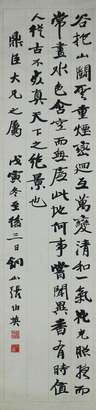 谷抱山關翠重煙巒迴互萬變清和一氣花光照夜而
常晝水色含空而無底此地何事嘗聞異香有時值
人終古不氛真天下之絕景也
鼎臣大兄之屬 戊寅冬至後三日銅山張伯英